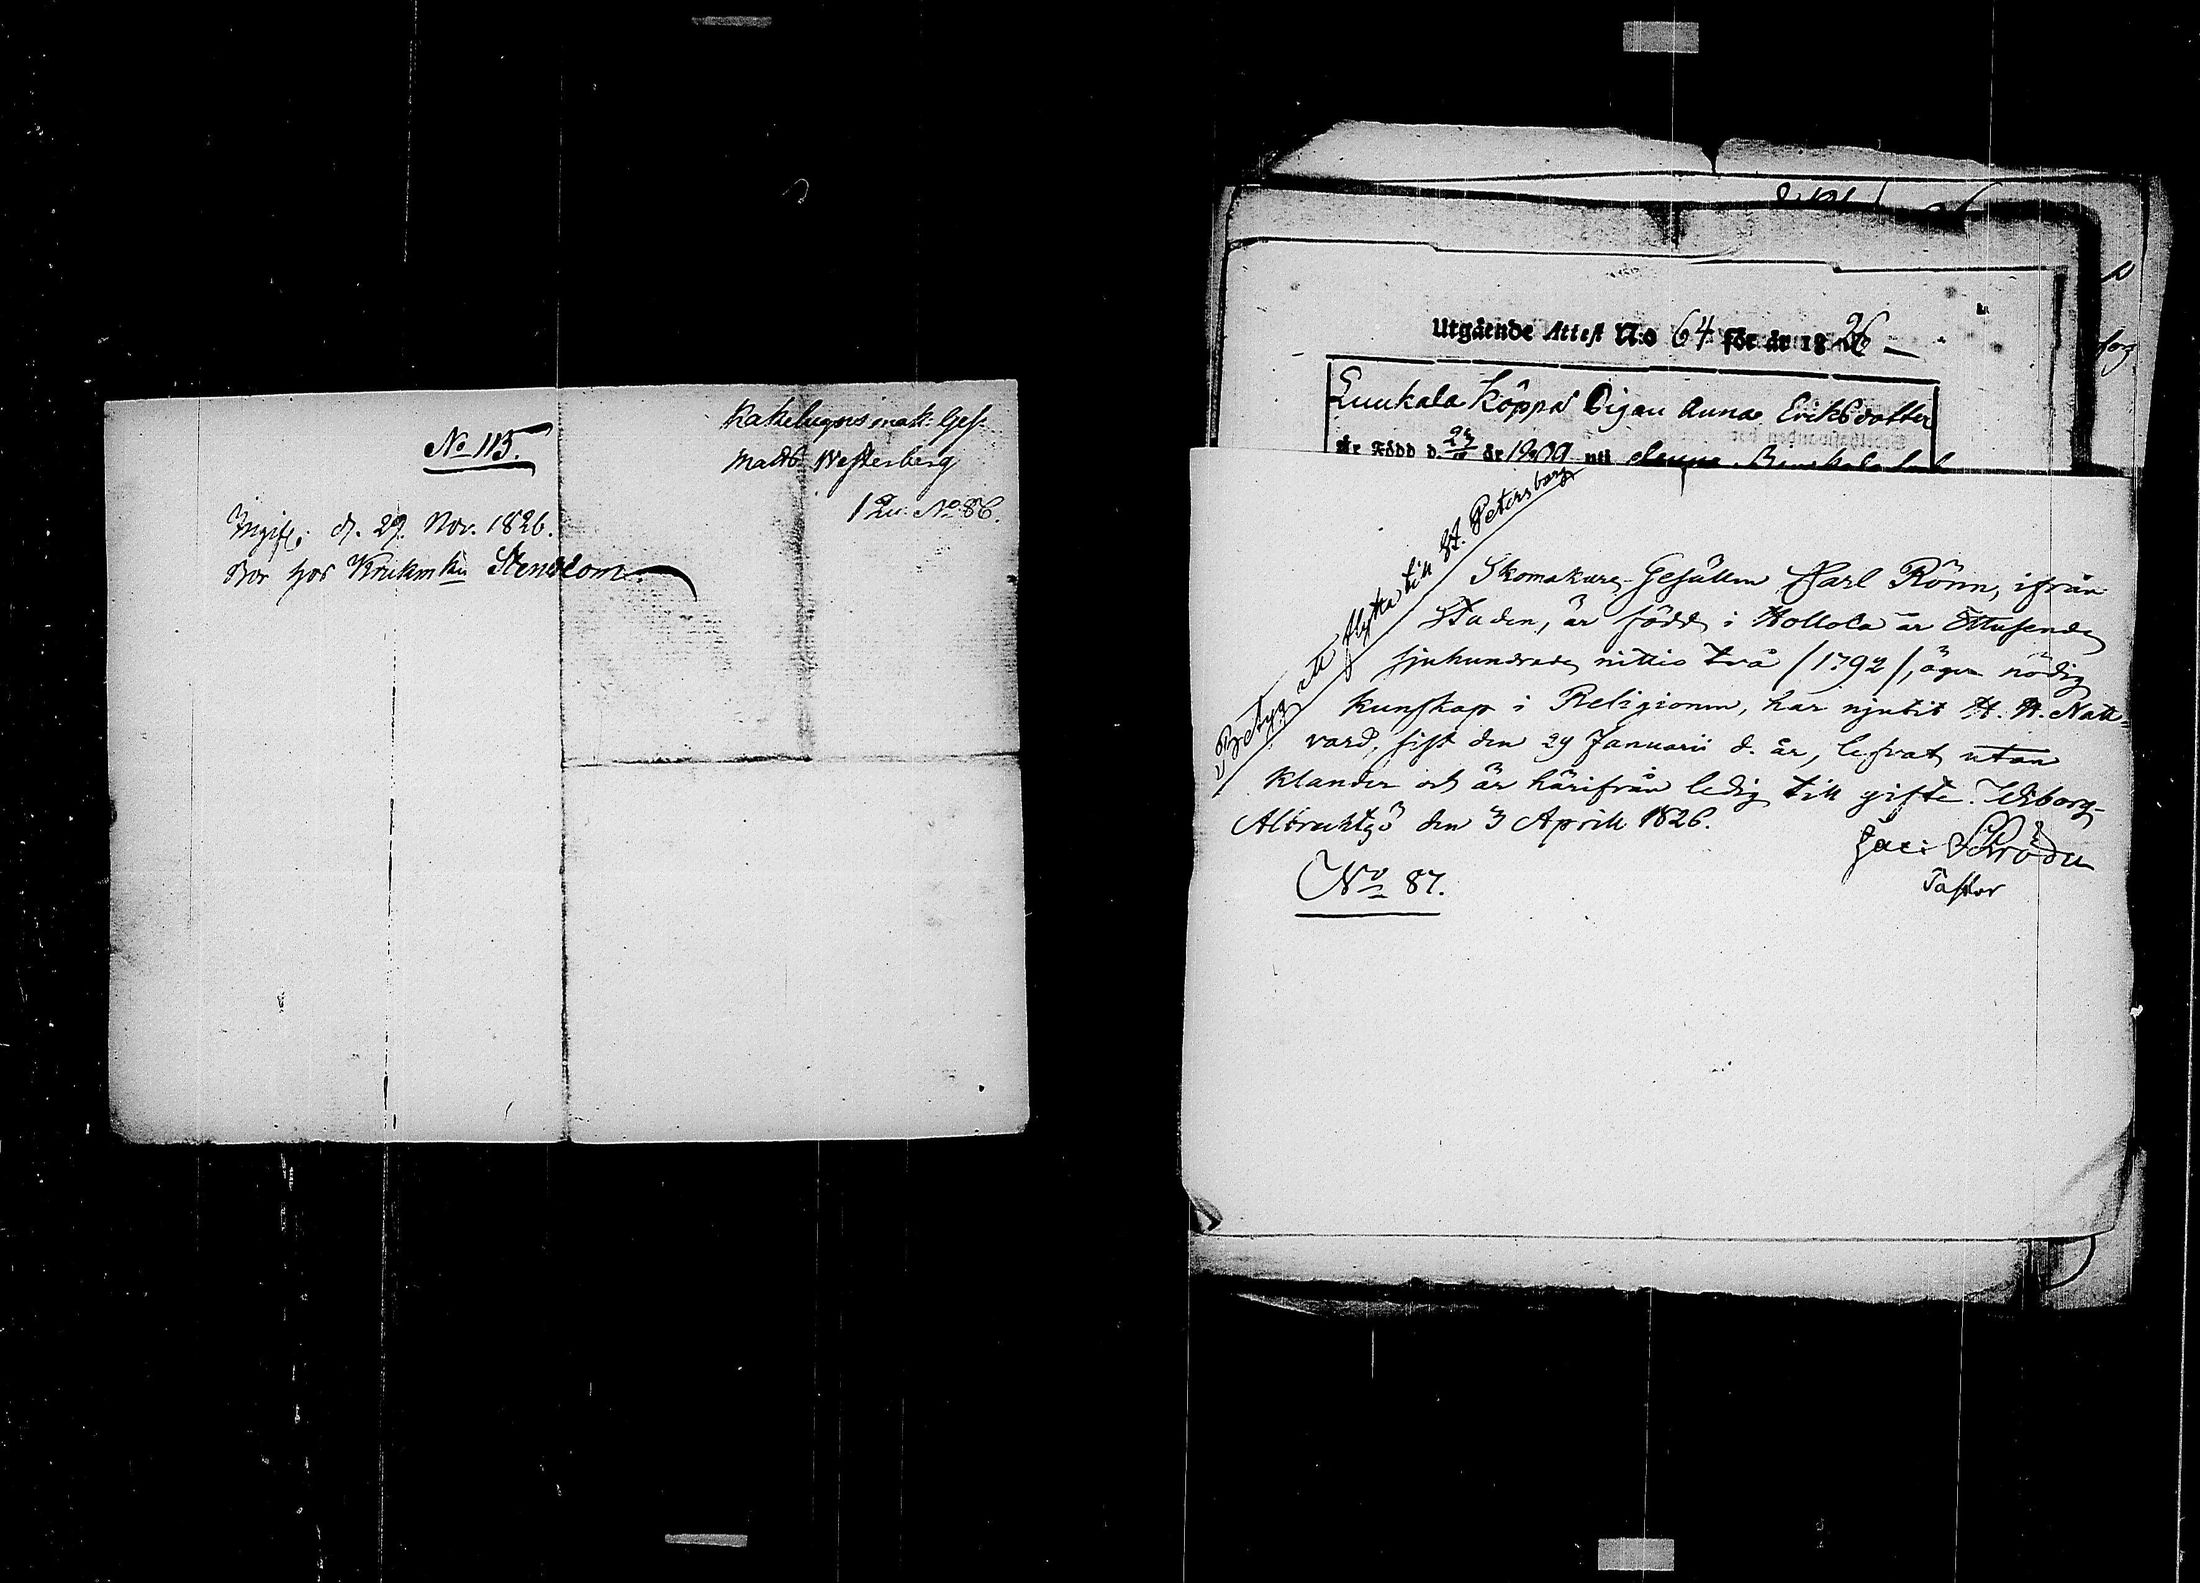 No 115.
Kakelugnsmak: Ges:
Matts Westerberg
1 Qu. No 86.
Ingift. d. 29. Nov. 1826.
Bor hos Krukmkn Stenblom.
Utgående Attest N:o 64 för år 1826
Luukala Köppä Pigan Anna Eriksdotter
är Född d. år 1809 uti
Betyg att flytta till St. Petersburg
Skomakare-Gesällen Karl Rönn, ifrån
Staden, är född i Hollola år Ettusende
sjuhundrade nittio två /1792/, äger nödig
kunskap i Religionen, har njutit H. H. Natt-
vard, sist den 29 Januarii d. år, lefvat utan
klander och är härifrån ledig till gifte. Wiborg-
den 3 Aprill 1826.
Jac: Schröder
Pastor
No 87.